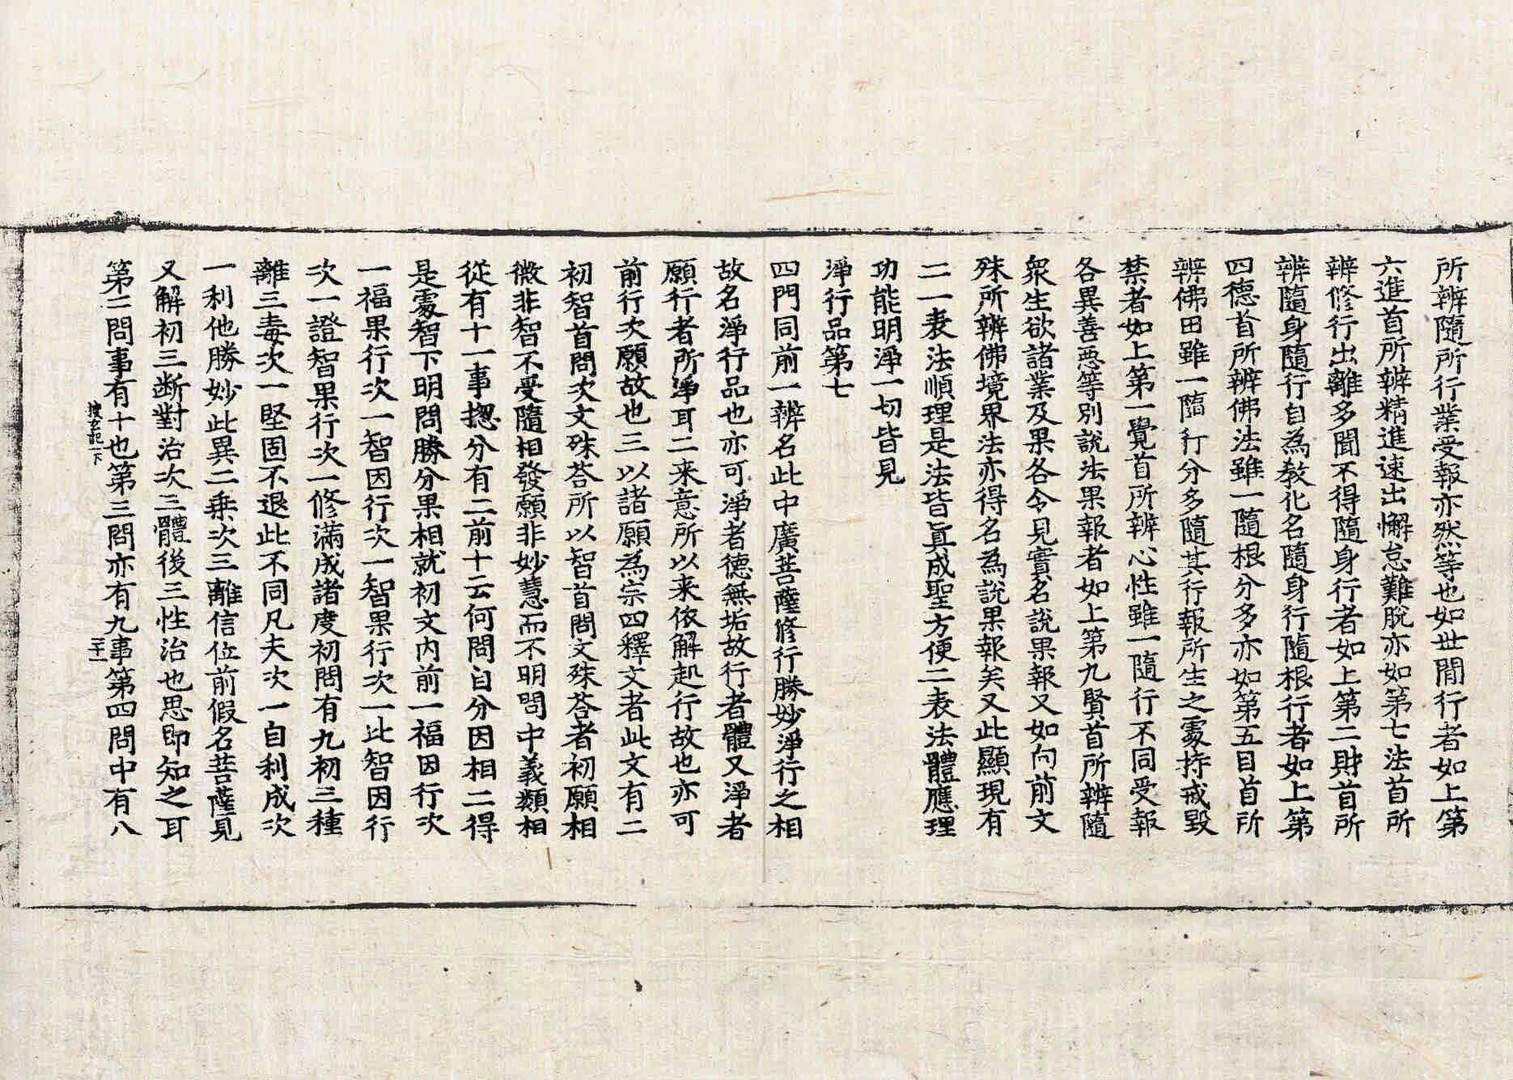 所辨隨所行業受報亦然等也如世間行者如上第
六進首所辨精進速出懈怠難脫亦如第七法首所
辨修行出離多聞不得隨身行者如上第二財首所
辨隨身隨行自為教化名隨身行隨根行者如上第
四德首所辨佛法雖一隨根分多亦如第五目首所
辨佛田雖一隨行分多隨其行報所生之處持戒毀
禁者如上第一覺首所辨心性雖一隨行不同受報
各異善惡等別說法果報者如上第九賢首所辨隨
衆生欲諸業及果各令見實名說果報又如向前文
殊所辨佛境界法亦得名為說果報矣又此顯現有
二一表法順理是法皆真成聖方便二表法體應理
功能明淨一切皆見
淨行品第七
四門同前一辨名此中廣菩薩修行勝妙淨行之相
故名淨行品也亦可淨者德無垢故行者體又淨者
願行者所淨耳二来意所以来依解起行故也亦可
前行次願故也三以諸願為宗四釋文者此文有二
初智首問次文殊荅所以智首問文殊荅者初願相
微非智不受隨相發願非妙慧而不明問中義類相
從有十一事揔分有二前十云何問自分因相二得
是處智下明問勝分果相就初文内前一福因行次
一福果行次一智因行次一智果行次一比智因行
次一證智果行次一修滿成諸度初問有九初三種
離三毒次一堅固不退此不同凡夫次一自利成次
一利他勝妙此異二乗次三離信位前假名菩薩見
又解初三断對治次三體後三性治也思即知之耳
第二問事有十也第三問亦有九事第四問中有八
搜玄記一下
二十一